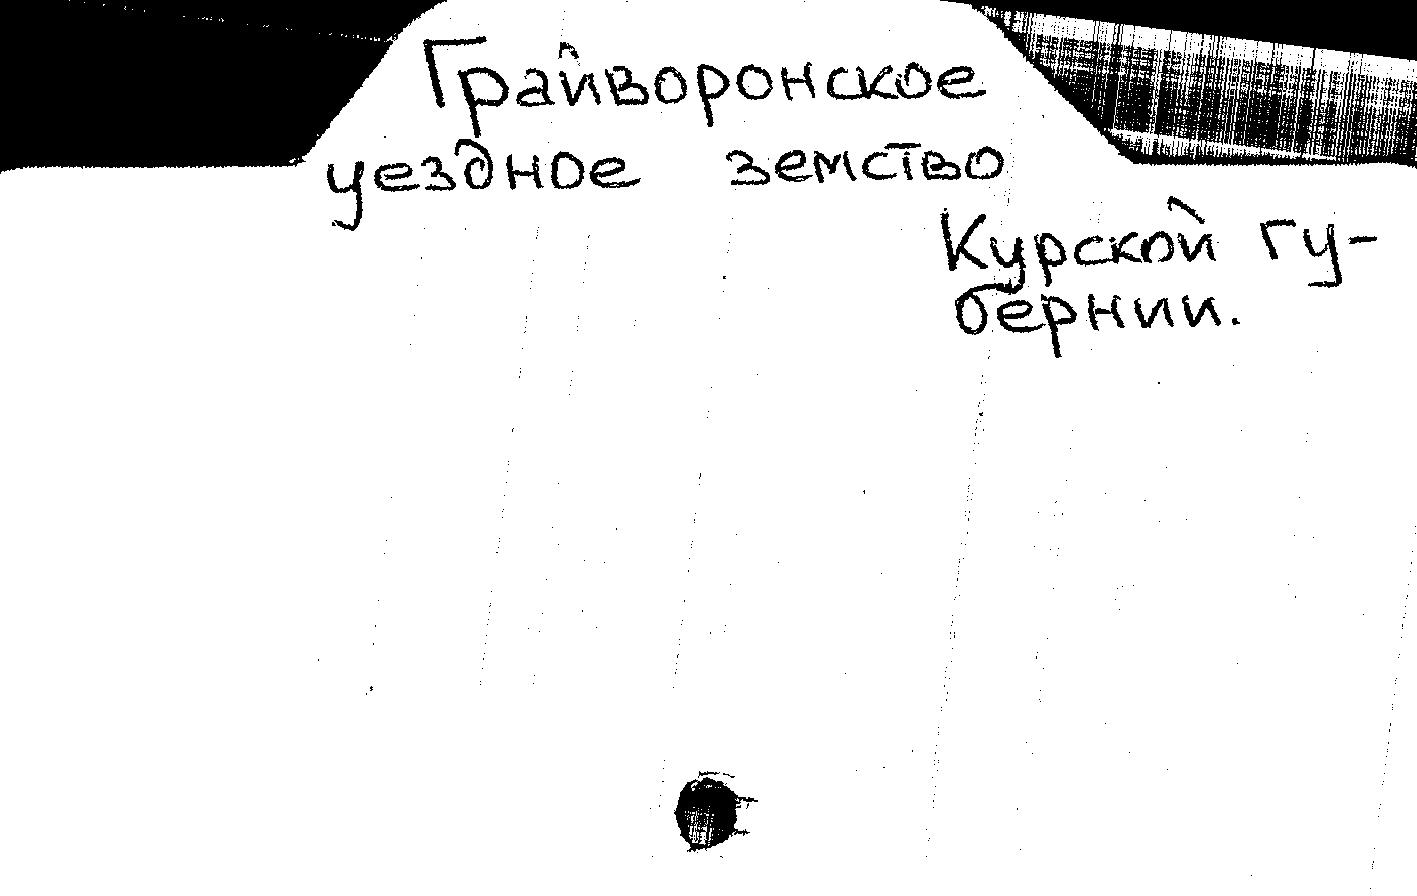 Грайворонское
уездное земство
Курской гу-
бернии.